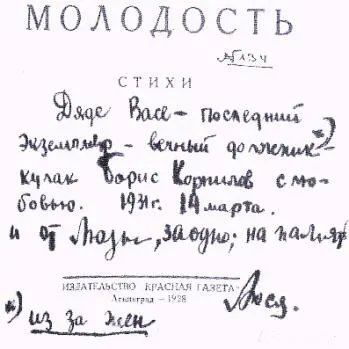 МОЛОДОСТЬ
№134
СТИХИ
Дяде Васе – последний
экземпляр – вечный должник – *)
кулак Борис Корнилов с лю-
бовью. 1931г. 19 марта.
и от Люды, заодно; на память
ИЗДАТЕЛЬСТВО КРАСНАЯ ГАЗЕТА
Ленинград – 1928
Люся.
*) из за жен